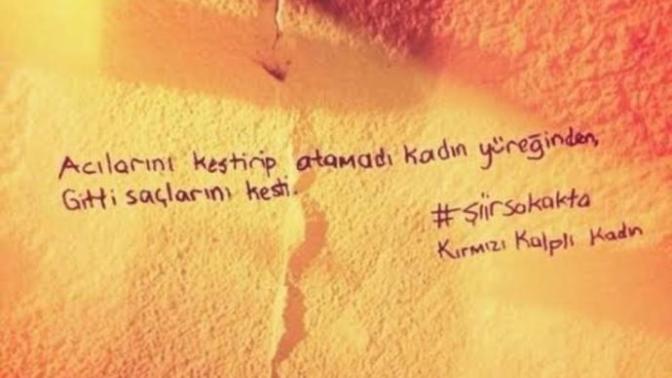 Acılarını kestirip atamadı kadın yüreğinden,
Gitti saçlarını kesti.
#şiirsokakta
Kırmızı Kalpli Kadın